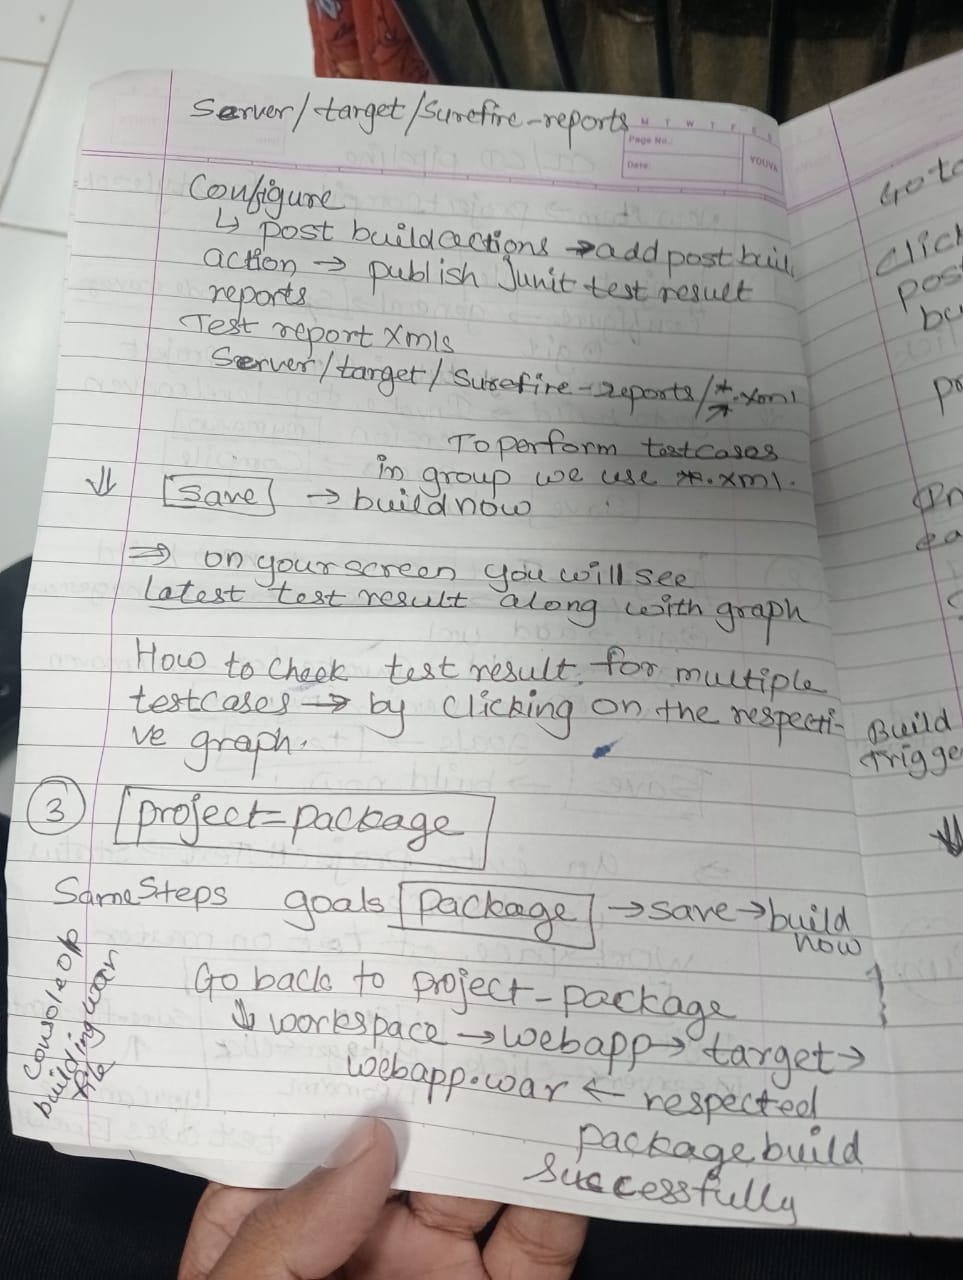 Server/target/surefire-reports
M T W T F S S
Page No.:
Date:
YOUVA
Configure
↳ post buildactions → add post buil
action → publish Junit test result
reports
Test report xmls
Server/target/surefire-reports/*.xml
To perform testcases
in group we use *.xml.
⇓ [save] → build now
⇒ on your screen you will see
Latest test result along with graph
How to check test result for multiple
testcases → by clicking on the respecti-
ve graph.
③ [project-package]
Same Steps goals [package] → save → build
now
Go back to project-package
⇓ workspace → webapp → target →
webapp.war ← respected
package build
successfully
console o/p
building war
file
Goto
click
pos
bu
Build
trigge
⇓